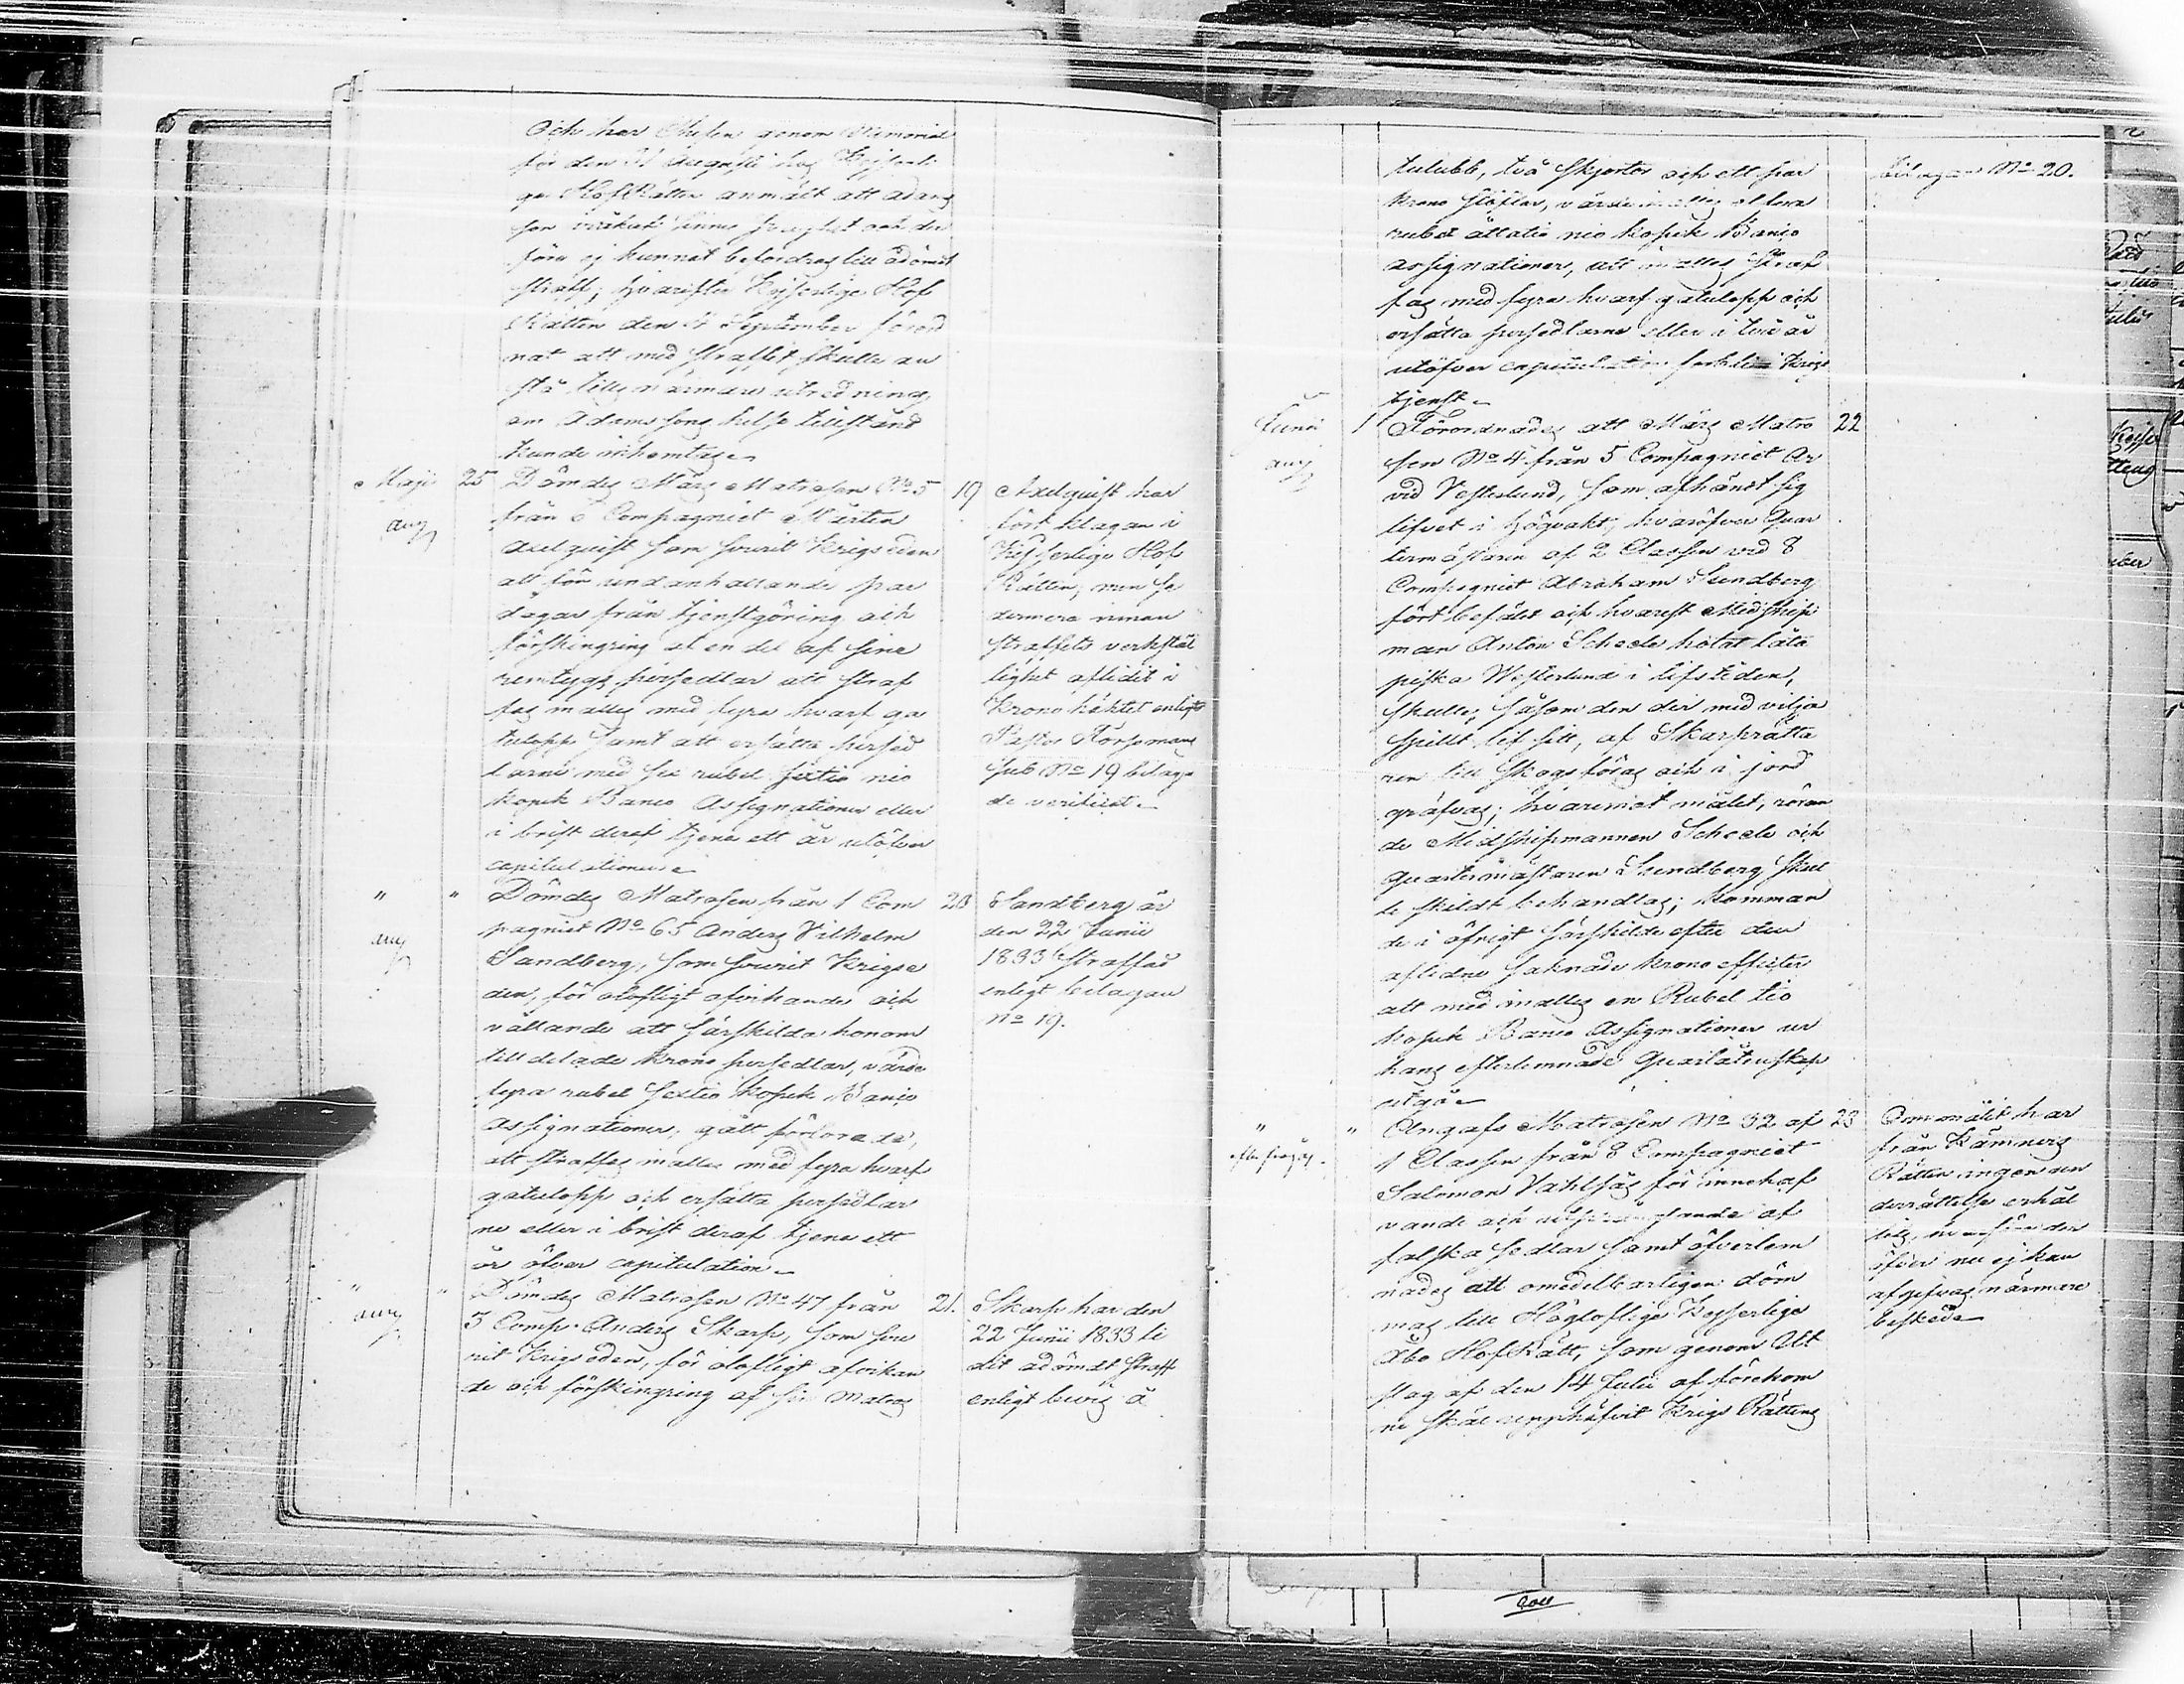 Och har Chefen genom Memorial
för den 31 Augusti hos Kejserli
ga HofRätten anmält att Adams
son
före ej kunnat befordras till ådömdt
straff; hvarefter Kejserlige Hof
Rätten den 4 September förord
nat att med straffet skulle an
stå till närmare utredning
om Adamssons helso tillstånd
kunde inhemtas
Maji 25 Dömdes Mars Matrosen No 5 19
aug
från 5 Compagniet Mårten
Axelquist som svurit Krigseden
att för undanhållande par
dagar från tjenstgöring och
förskingring af en del af sine
remtygs persedlar att straf
fas malles med fyra hvarf ga
tulopp samt att ersätta persed
larne med sex rubel sextio nio
kopek Banco Assignationer eller
i brist deraf tjena ett år utöfver
capitulationen
Axelquist har
fört klagan i
Kejserlige Hof
Rätten, men se
dermera innan
straffets verkstäl
lighet aflidit i
Krono häktet enligt
Pastor Forssmans
sub No 19 bilaga
de verificat
" " Dömdes Matrosen från 1 Com 20
aug
pagniet No 65 Anders Vilhelm
Sandberg, som svurit Krigse
den, för olofligt afvikande och
vållande att särskilda honom
tilldelade Krono persedlar, värde
fyra rubel sextio kopek Banco
Assignationer, gått förlorade,
att straffas malles med fyra hvarf
gatulopp och ersätta persedlar
ne eller i brist deraf tjena ett
år öfver capitulation
Sandberg är
den 22 Junii
1833 straffad
enligt bilagan
No 19.
" " Dömdes Matrosen No 47 från 21.
aug
5 Comp. Anders Skarp, som svu
rit Krigseden, för olofligt afvikan
de och förskingring af sin Matros
Skarp har den
22 Junii 1833 li
dit ådömdt straff
enligt bevis å
tulubb, två skjortor och ett par
Krono stöflar, värde inalles ellava
rubel åttatio nio kopek Banco
assignationer, att malles straf
fas med fyra hvarf gatulopp och
ersätta persedlarne eller i två år
utöfver capitulation förblifva i Krigs
tjenst
bilagan No 20.
Junii 1 Förordnades att Mars Matro 22
aug
sen No 4 från 5 Compagniet Ar
vid Vesterlund, som afhändt sig
lifvet i högvakt, hvaröfver Quar
termästaren af 2 Classen vid 8
Compagniet Abraham Sundberg
fört befälet och hvarest Midship
man Anton Scheele hotat låta
piska Westerlund i lifstiden,
skulle, såsom den der med vilja
spillt lif sitt, af Skarprätta
ren till Skogs föras och i jord
gräfvas; hvaremot målet, röran
de Midshipmannen Scheele och
Quartermästaren Sundberg skul
le skildt behandlas; komman
de i öfrigt särskilde efter den
aflidne saknade krono effecter
att med inalles en Rubel tio
kopek Banco Assignationer ur
hans efterlemnade Quarlåtenskap
utgå
" " Angafs Matrosen No 32 af 23
efterfrågas.
1 Classen från 8 Compagniet
Salomon Vahlsås för innehaf
vande och utprånglande af
falska sedlar samt öfverlem
nades att omedelbarligen döm
mas till Högloflige Kejserlige
Åbo HofRätt, som genom Ut
slag af den 14 Julii af förekom
ne skäl upphäfvit Krigs Rättens
Om målet har
från Kämners
Rätten ingen un
derrättelse erhål
lits,
öfver nu ej kan
afgifvas närmare
besked